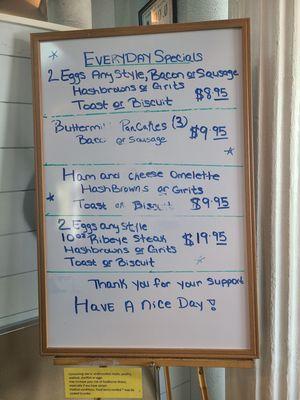 EVERYDAY Specials
2 Eggs Any Style, Bacon or Sausage
Hashbrowns or Grits
Toast or Biscuit $8.95
Pancakes (3)
or Sausage $9.95
Ham and Cheese Omelette
HashBrowns or Grits
Toast or $9.95
2 Eggs any Style
10oz Ribeye Steak $19.95
Hashbrowns or Grits
Toast or Biscuit
Thank you for your Support
HAVE A nice DAY!